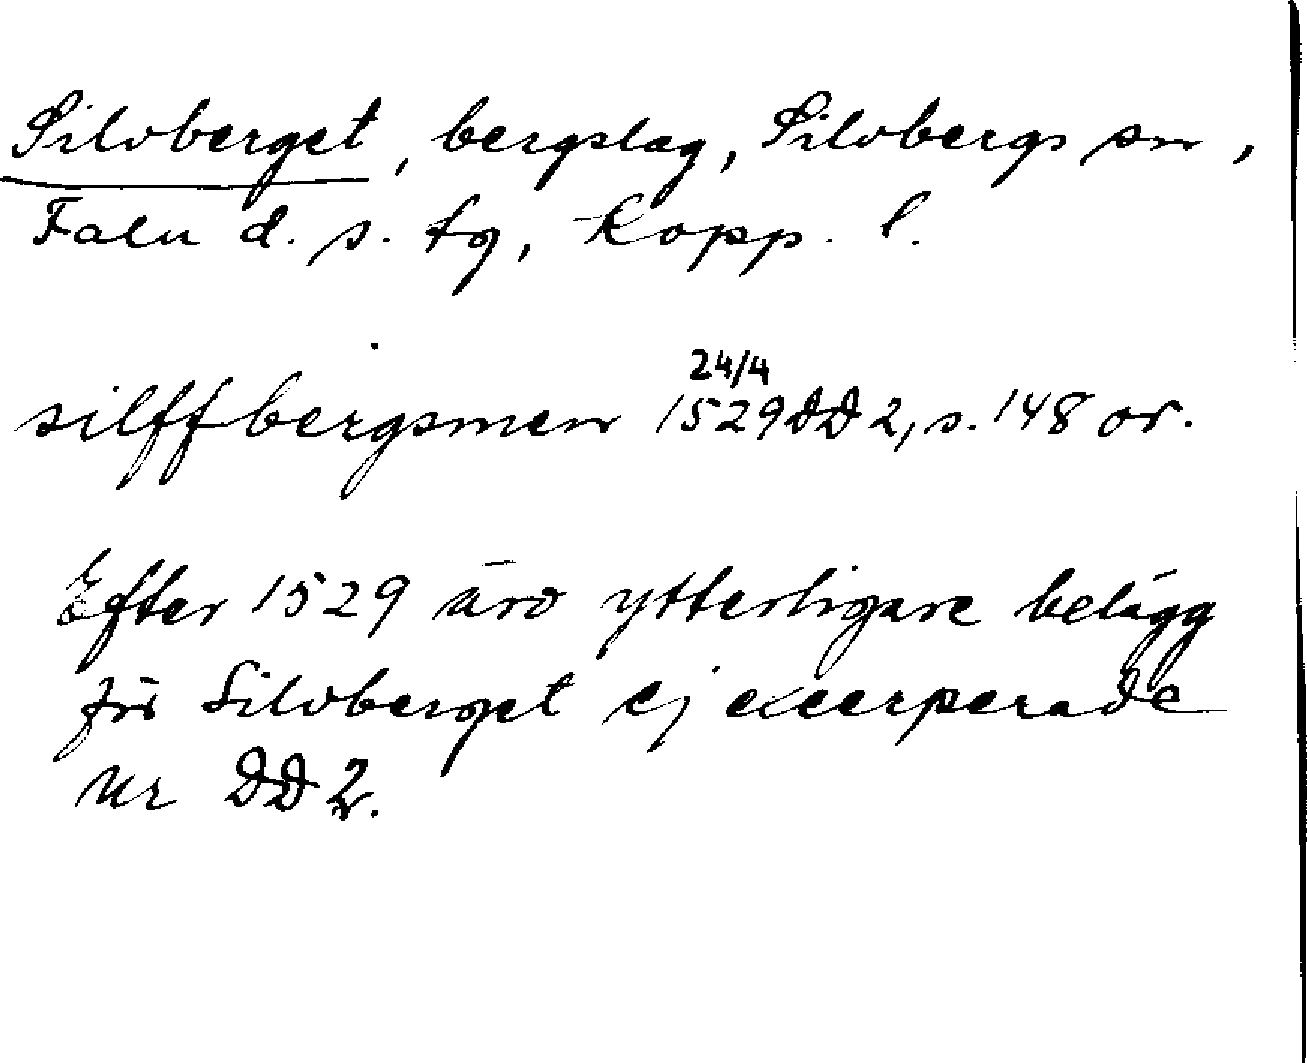 Silvberget, bergslag, Silvbergs sn,
Falu d. s. fg, Kopp. l.
silffbergsmen 24/4 1529 DD 2, s. 148 or.
Efter 1529 äro ytterligare belägg
för Silvberget ej excerperade
ur DD 2.